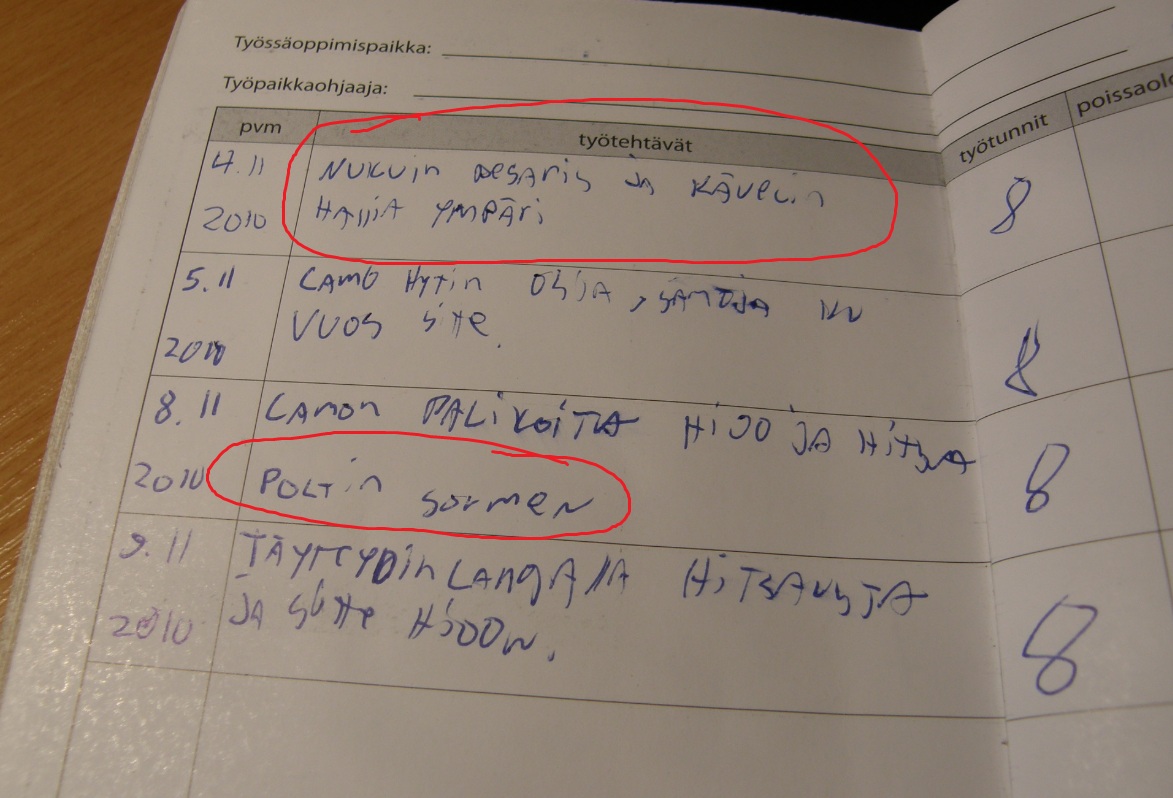 Työssäoppimispaikka:
Työpaikkaohjaaja:
pvm työtehtävät työtunnit
4.11 NUKUIN PESARIS JA KÄVELIN 8
2010 HALLIA YMPÄRI
5.11 CAMO HYTIN OSIA, SAMOJA KU
2010 VUOS SITTE. 8
8.11 CAMON PALIKOITA HIOO JA HITSVA
2010 POLTIN SORMEN 8
9.11 TÄYTEYDINLANGALLA HITSAUSTA
2010 JA SITTE HIOON. 8